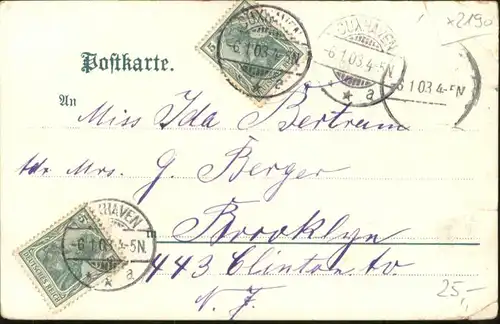 x2190
CUXHAVEN
-6.1.03.4-5N
* a
CUXHAVEN
-6.1.03.4-5N
* a
6 1 03 4-5N
Postkarte.
An Miss Ida Bertram
Mrs. G. Berger
Brooklyn
443 Clinton
N. J.
CUXHAVEN
-6.1.03.4-5N
* a
5
DEUTSCHES REICH
25,-